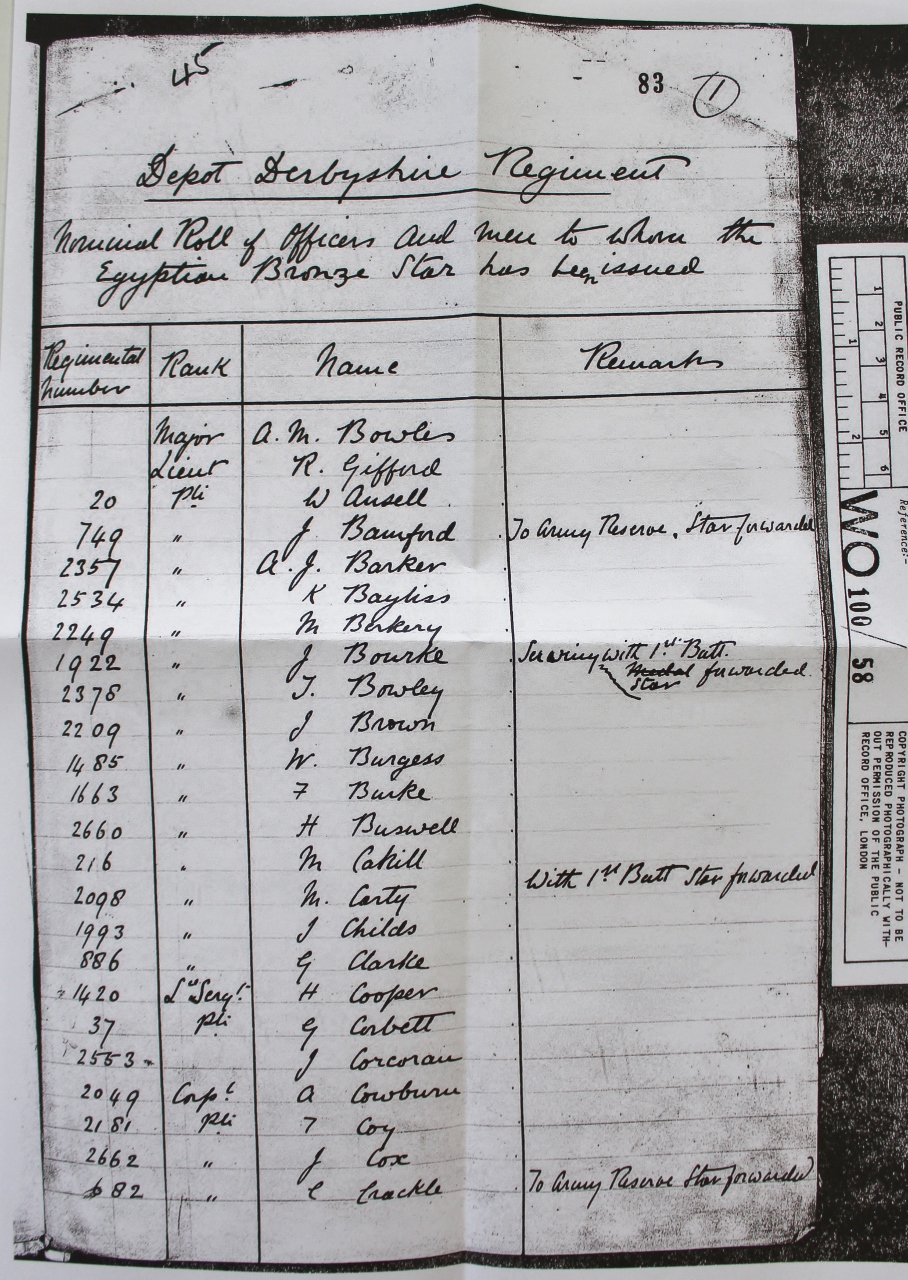 45
83 1
Depot Derbyshire Regiment
Nominal Roll of Officers and men to whom the
Egyptian Bronze Star has been issued
Regimental Number Rank Name Remarks
Major A. M. Bowles
Lieut R. Gifford
20 Pte W Ansell
749 " J Bamford To Army Reserve. Star forwarded
2357 " A. J. Barker
2534 " K Bayliss
2249 " M Berkery
1922 " J Bourke Serving with 1st Batt.
Medal forwarded
Star
2378 " T. Bowley
2209 " J Brown
1485 " W. Burgess
1663 " F Burke
2660 " H Buswell
216 " M Cahill With 1st Batt Star forwarded
2098 " M. Carty
1993 " J Childs
886 " G Clarke
1420 Lce Sergt. H Cooper
37 Pte G Corbett
2553 J Corcoran
2049 Corpl. A Cowburn
2181 Pte T Coy
2662 " J Cox
682 " C Crackle To Army Reserve Star forwarded
PUBLIC RECORD OFFICE
1 2 3 4 5 6
1 2
Reference:-
WO 100/58
COPYRIGHT PHOTOGRAPH - NOT TO BE
REPRODUCED PHOTOGRAPHICALLY WITH-
OUT PERMISSION OF THE PUBLIC
RECORD OFFICE, LONDON